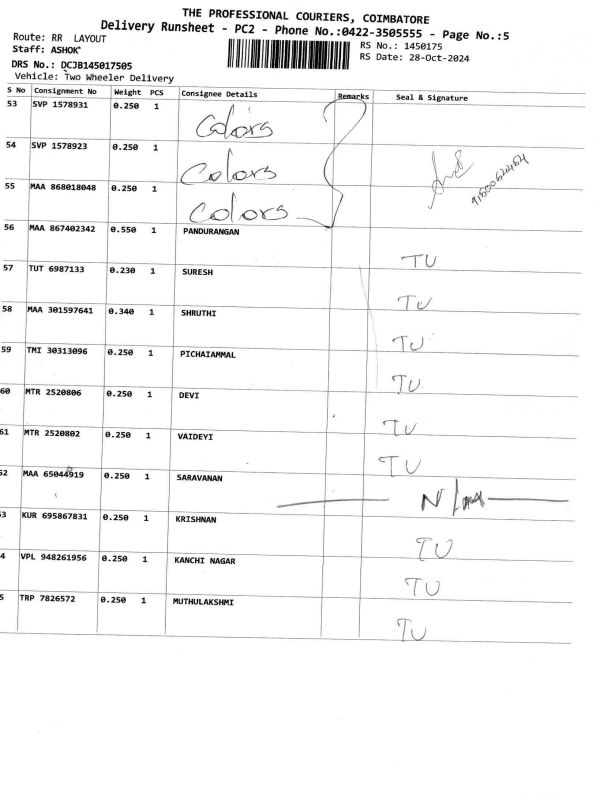 THE PROFESSIONAL COURIERS, COIMBATORE
Delivery Runsheet - PC2 - Phone No.:0422-3505555 - Page No.:5
Route: RR LAYOUT
RS No.: 1450175
Staff: ASHOK
RS Date: 28-Oct-2024
DRS No.: DCJB145017505
Vehicle: Two Wheeler Delivery
S No Consignment No Weight PCS Consignee Details Remarks Seal & Signature
53 SVP 1578931 0.250 1 Colors
54 SVP 1578923 0.250 1 Colors
55 MAA 868018048 0.250 1 Colors
56 MAA 867402342 0.550 1 PANDURANGAN TU
57 TUT 6987133 0.230 1 SURESH TU
58 MAA 301597641 0.340 1 SHRUTHI TU
59 TMI 30313096 0.250 1 PICHAIAMMAL TU
60 MTR 2520806 0.250 1 DEVI TU
61 MTR 2520802 0.250 1 VAIDEYI TU
62 MAA 65044919 0.250 1 SARAVANAN
63 KUR 695867831 0.250 1 KRISHNAN TU
4 VPL 948261956 0.250 1 KANCHI NAGAR TU
5 TRP 7826572 0.250 1 MUTHULAKSHMI TU